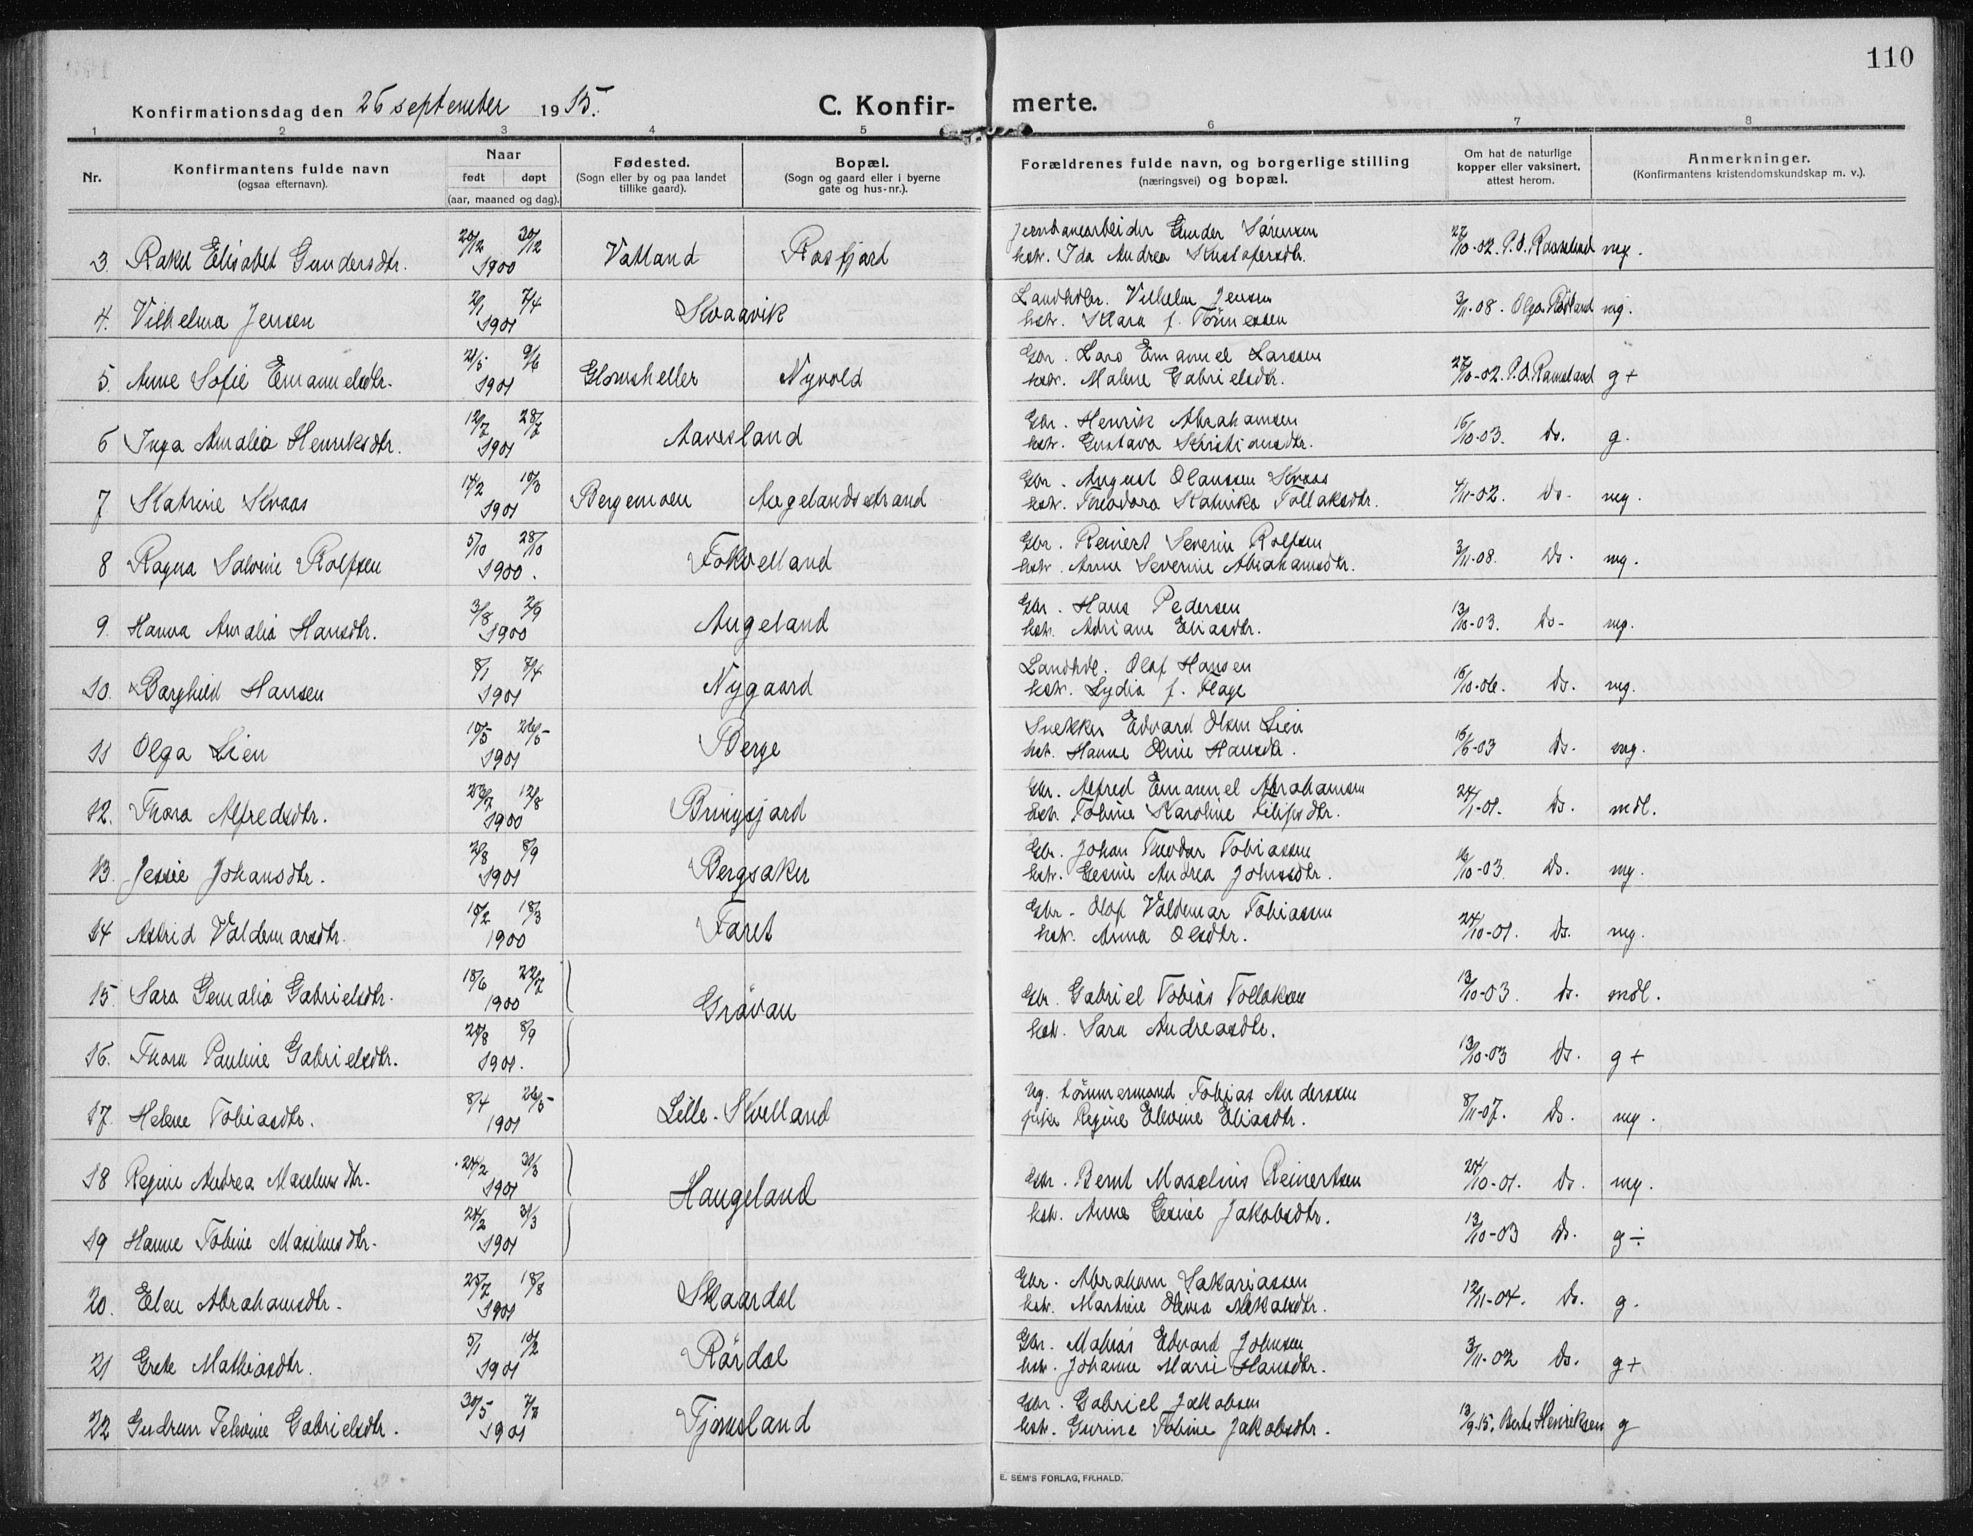 110
Konfirmationsdag den 26 september 1915.
C. Konfir- merte.
1 2 3 4 5 6 7 8
Nr.
Konfirmantens fulde navn
(ogsaa efternavn).
Naar
født døpt
(aar, maaned og dag).
Fødested.
(Sogn eller by og paa landet
tillike gaard).
Bopæl.
(Sogn og gaard eller i byerne
gate og hus-nr.).
Forældrenes fulde navn, og borgerlige stilling
(næringsvei) og bopæl.
Om hat de naturlige
kopper eller vaksinert,
attest herom.
Anmerkninger.
(Konfirmantens kristendomskundskap m. v.).
Jernbanearbeider Gunder Sørensen
3. Rakel Elisabet Gundersdtr. 20/12 30/12 1900 Vatland Rosfjord hstr. Ida Andrea Kristofersdtr. 27/10-02. P.O. Ramsland mg.
Landhdlr. Vilhelm Jensen
4. Vilhelma Jensen 2/1 7/4 1901 Kvaavik hstr. Klara f. Tønnessen 3/11-08. Olga Rødland mg.
Gbr. Lars Emanuel Larssen
5. Anne Sofie Emanuelsdtr. 21/5 9/6 1901 Glomsheller Nyvold hstr. Malene Gabrielsdtr. 27/10-02. P.O. Ramsland g+
Gbr. Henrik Abrahamsen
6 Inga Amalia Henriksdtr. 12/7 28/7 1901 Aavesland hstr. Gustava Kristiansdtr. 16/10-03. Ds. g.
Gbr. August Olaussen Kvaas
7 Katrine Kvaas 17/2 10/3 1901 Bergemoen Augelandsstrand hstr. Theodora Katrika Tollaksdtr. 4/11-02. Ds. mg.
Gbr. Reinert Severin Rolfsen
8 Ragna Salvine Rolfsen 5/10 28/10 1900. Fokvelland hstr. Anne Severine Abrahamsdtr. 3/11-08. Ds. mg.
Gbr. Hans Pedersen
9. Hanna Amalia Hansdtr. 3/8 2/9 1900 Augeland hstr. Adriane Eliasdtr. 13/10-03. Ds. mg.
Landhdl. Olaf Hansen
10. Borghild Hansen 8/1 7/4 1901 Nygaard hstr. Lydia f. Flage 16/10-06. Ds. mg.
Snekker Edvard Olsen Lien
11 Olga Lien 10/5 26/5 1901 Berge hstr. Hanne Oline Hansdtr. 16/6-03 Ds. mg.
Gbr. Alfred Emanuel Abrahamsen
12. Thora Alfredsdtr. 23/7 12/8 1900 Bringsjord hstr. Tobine Karoline Filipsdtr. 24/1-01. Ds. mdl.
Gbr. Johan Theodor Tobiassen
13. Jessie Johansdtr. 2/8 8/9 1901 Bergsaker hstr. Gesine Andrea Johnsdtr. 16/10-03. Ds. mg.
Gbr. Olaf Valdemar Tobiassen
14 Astrid Valdemarsdtr. 15/2 18/3 1900 Faret hstr. Anna Olsdtr. 24/10-01. Ds. mg.
15. Sara Gemalia Gabrielsdtr. 18/6 22/7 1900 Grøvan Gbr. Gabriel Tobias Tollaksen 13/10-03. Ds. mdl.
hstr. Sara Andreasdtr.
16. Thora Pauline Gabrielsdtr. 20/8 8/9 1901. 13/10-03 Ds. g+
ug. tømmermand Tobias Anderssen
17. Helene Tobiasdtr. 8/4 26/5 1901 Lille-Kvelland pike Regine Elevine Eliasdtr. 8/11-07. Ds. mg.
18 Regine Andrea Maselinsdtr. 24/2 31/3 1901 Haugeland Gbr. Bernt Maselius Reinertsen 24/10-01. Ds. mg.
hstr. Anne Gesine Jakobsdtr.
19 Hanne Tobine Maselinsdtr. 24/2 31/3 1901 13/10-03 Ds. g÷
Gbr. Abraham Sakariassen
20. Elen Abrahamsdtr. 25/7 18/8 1901 Skaardal hstr. Martine Olevia 12/11-04. Ds. g.
Gbr. Matias Edvard Johnsen
21 Grete Mathiasdtr. 5/1 10/2 1901 Rørdal hstr. Johanne Marie Hansdtr. 3/11-02 Ds. g+
Gbr. Gabriel Jakobsen
22 Gudrun Televine Gabrielsdtr. 30/5 7/7 1901 Fjomsland hstr. Gurine Tobine Jakobsdtr. 13/9-15. Berte Henriksen g
E. SEM'S FORLAG, FR.HALD.